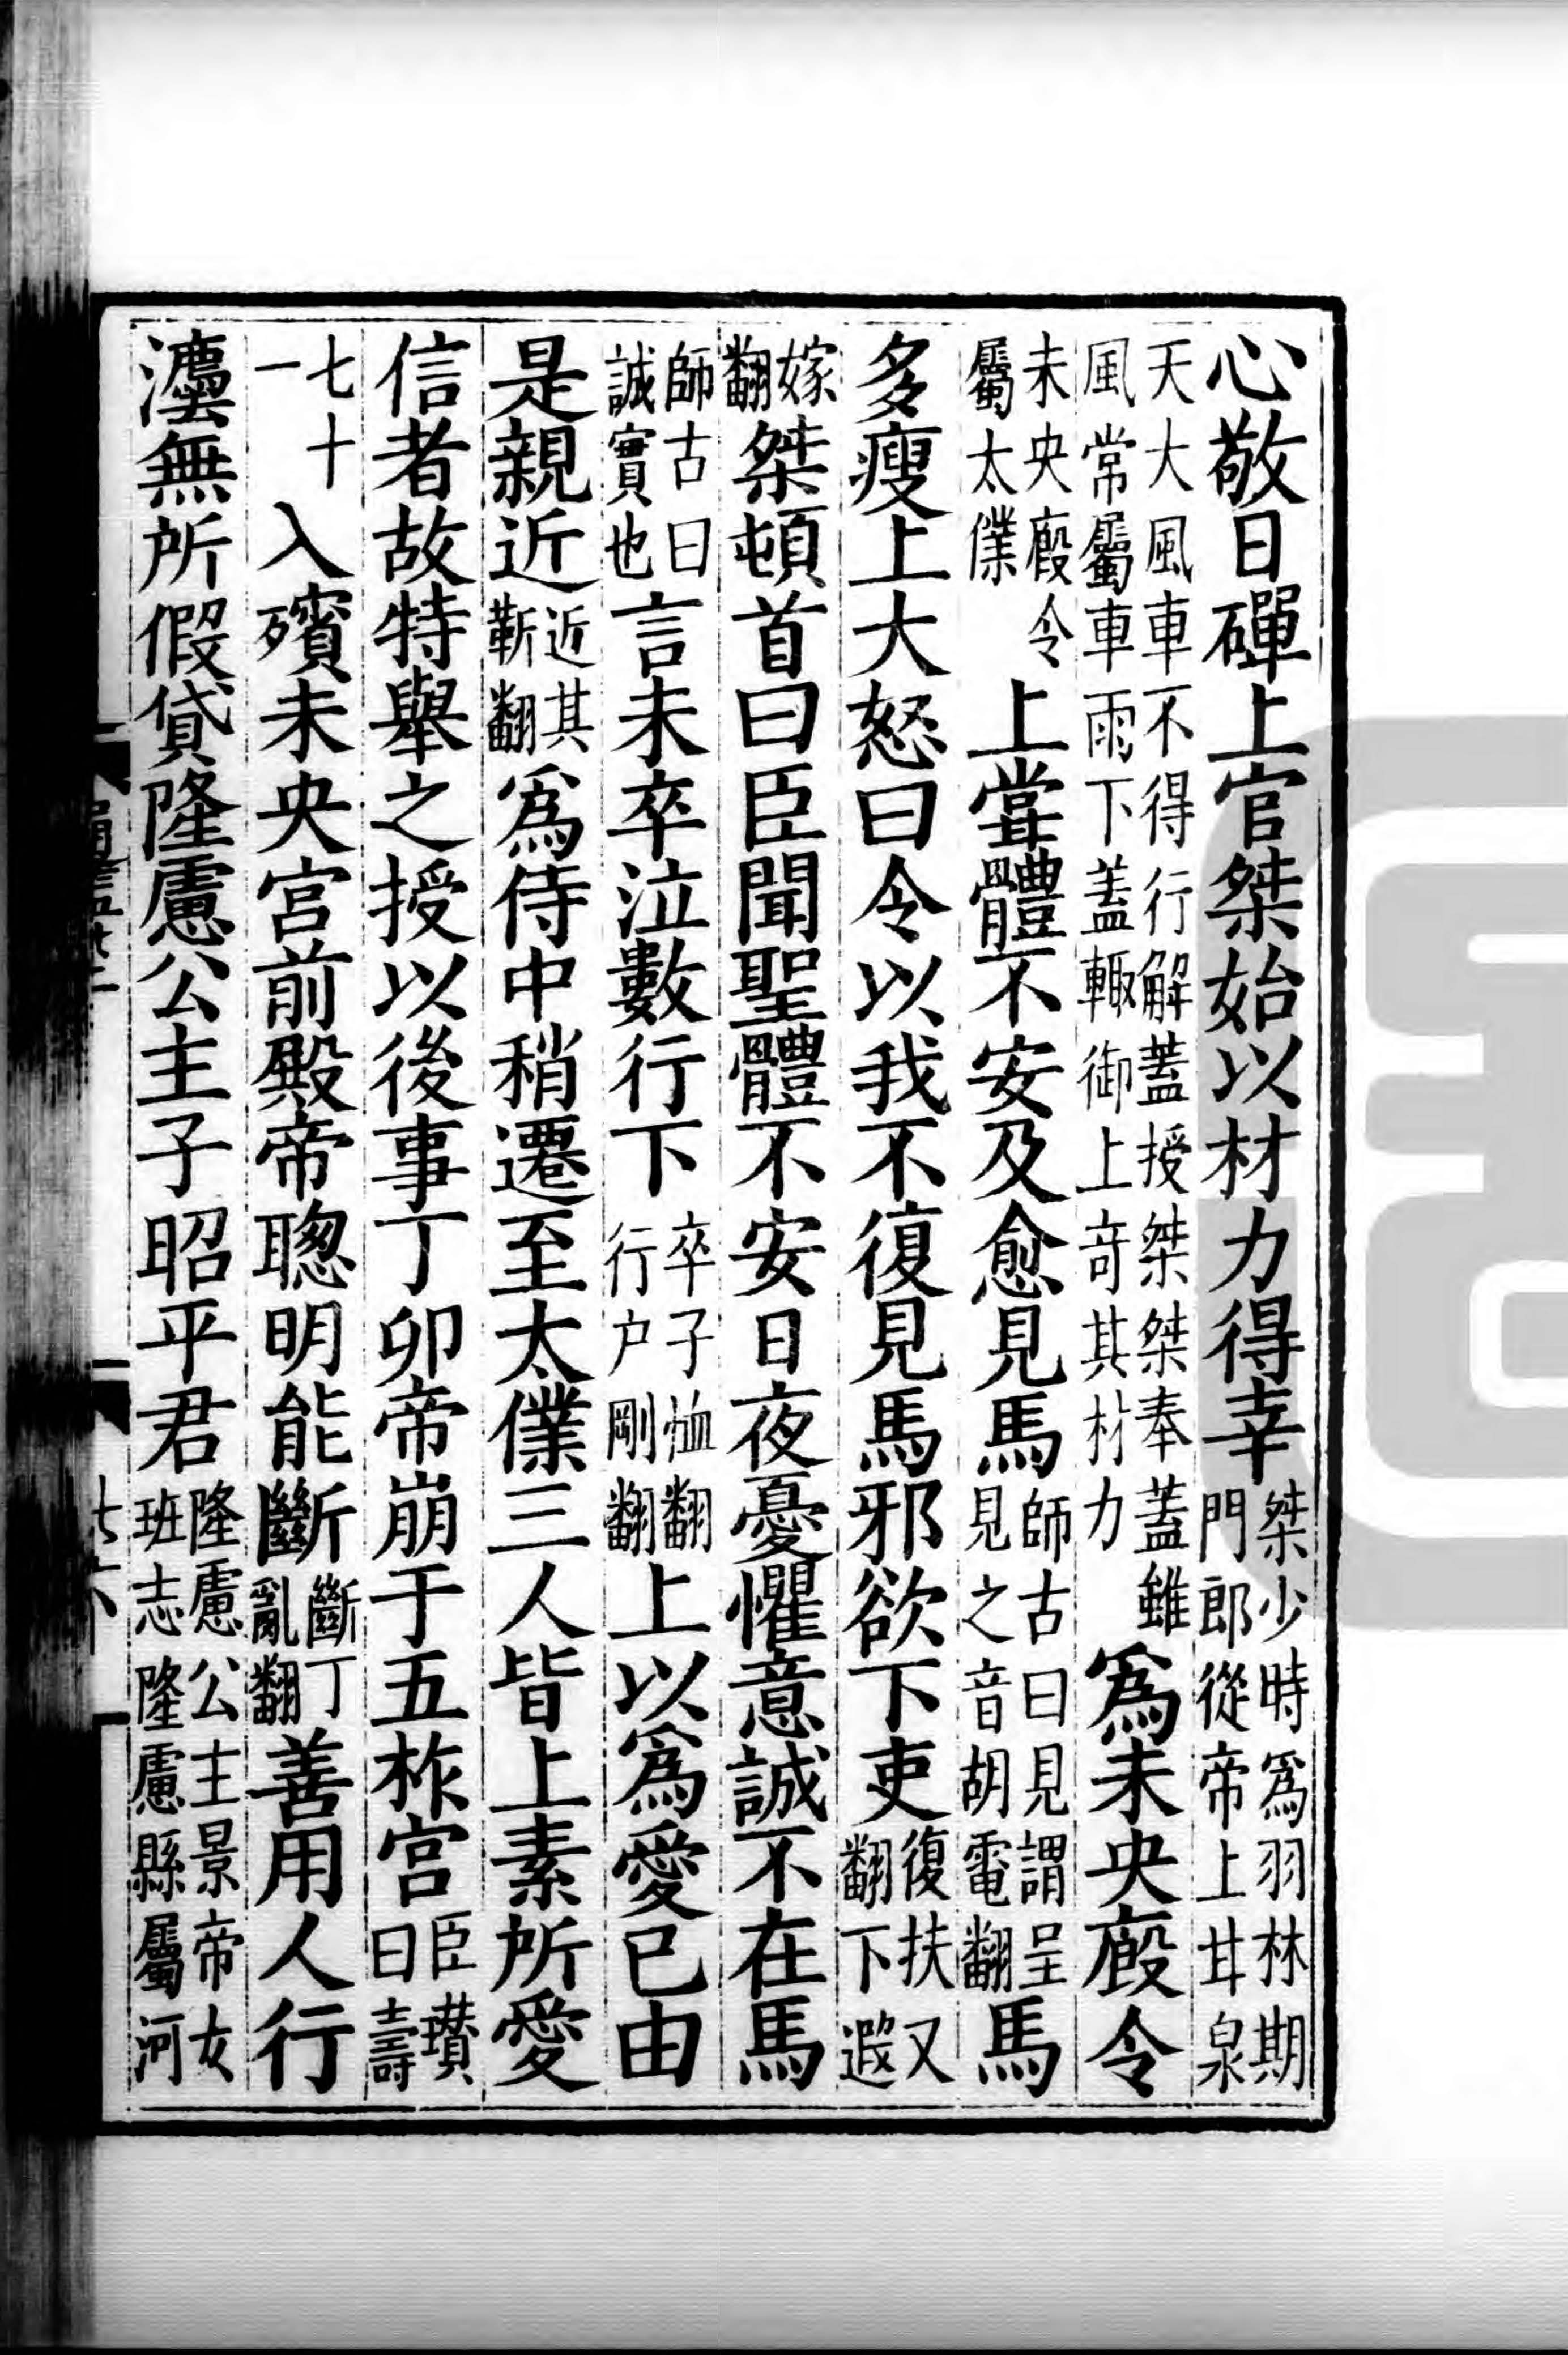 心敬日磾上官桀始以材力得幸桀少時爲羽林期門郎從帝上甘泉
天大風車不得行解蓋授桀桀奉蓋雖風常屬車雨下蓋輙御上竒其材力爲未央廄令
未央廄令屬太僕上甞體不安及愈見馬師古曰見謂呈見之音胡電翻馬
多瘦上大怒曰令以我不復見馬邪欲下吏復扶又翻下遐
嫁翻桀頓首曰臣聞聖體不安日夜憂懼意誠不在馬
師古曰誠實也言未卒泣數行下卒子恤翻行户剛翻上以爲愛已由
是親近近其靳翻爲侍中稍遷至太僕三人皆上素所愛
信者故特舉之授以後事丁卯帝崩于五柞宮臣瓚曰壽
七十一入殯未央宮前殿帝聦明能斷斷丁亂翻善用人行
灋無所假貸隆慮公主子昭平君隆慮公主景帝女班志隆慮縣屬河